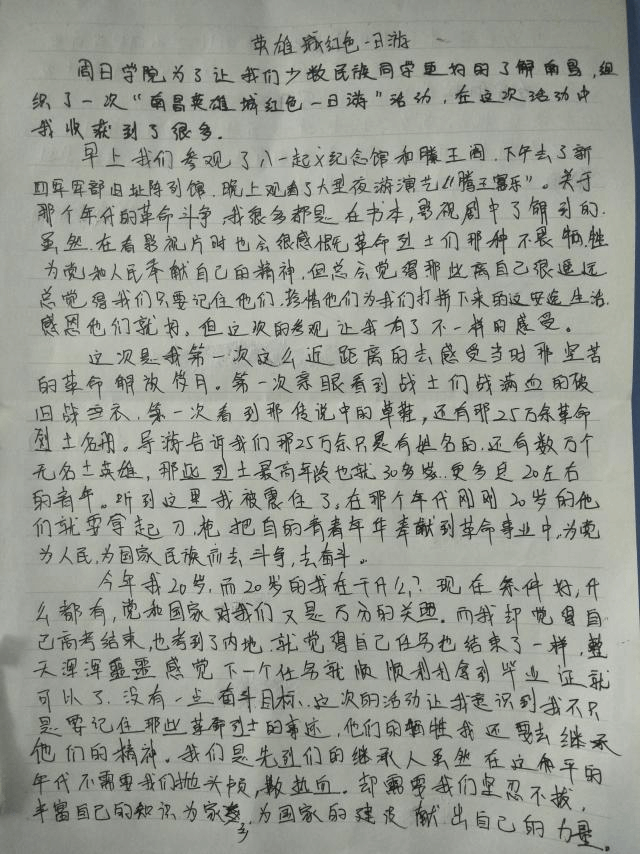 英雄城红色一日游
周日学院为了让我们少数民族同学更好的了解南昌,组
织了一次“南昌英雄城红色一日游”活动,在这次活动中
我收获到了很多。
早上我们参观了八一起义纪念馆和滕王阁,下午去了新
四军军部旧址陈列馆,晚上观看了大型夜游演艺《腾王宴乐》。关于
那个年代的革命斗争,我很多都是在书本,影视剧中了解到的.
虽然,在看影视片时也会很感慨无革命烈士们那种不畏牺牲
为党和人民奉献自己的精神,但总会觉得那些离自己很遥远
总觉得我们只要记住他们,珍惜他们为我们打拼下来的这安逸生活.
感恩他们就好,但这次的参观让我有了不一样的感受。
这次是我第一次这么近距离的去感受当时那坚苦
的革命解放岁月。第一次亲眼看到战士们战满血的破
旧战衣,第一次看到那传说中的草鞋,还有那25万余革命
烈士名册。导游告诉我们那25万余只是有姓名的,还有数万个
无名士英雄,那些烈士最高年龄也就30多岁.更多是20左右
的青年。听到这里我被震住了。在那个年代刚刚20岁的他
们就要拿起刀,枪把自的青春年华奉献到革命事业中,为党
为人民,为国家民族而去斗争,去奋斗。
今年我20岁,而20岁的我在干什么?现在条件好,什
么都有,党和国家对我们又是万分的关照.而我却觉得自
己高考结束,也考到了内地,就觉得自己任务也结束了一样,整
天浑浑噩噩感觉下一个任务就顺顺利利拿到毕业证就
可以了,没有一点奋斗目标,这次的活动让我意识到我不只
是要记住那些革命烈士的事迹,他们的牺牲我还要去继承
他们的精神。我们是先烈们的继承人虽然在这和平的
年代不需要我们抛头颅,散热血.却需要我们坚忍不拔,
丰富自己的知识为家乡,为国家的建设献出自己的力量。